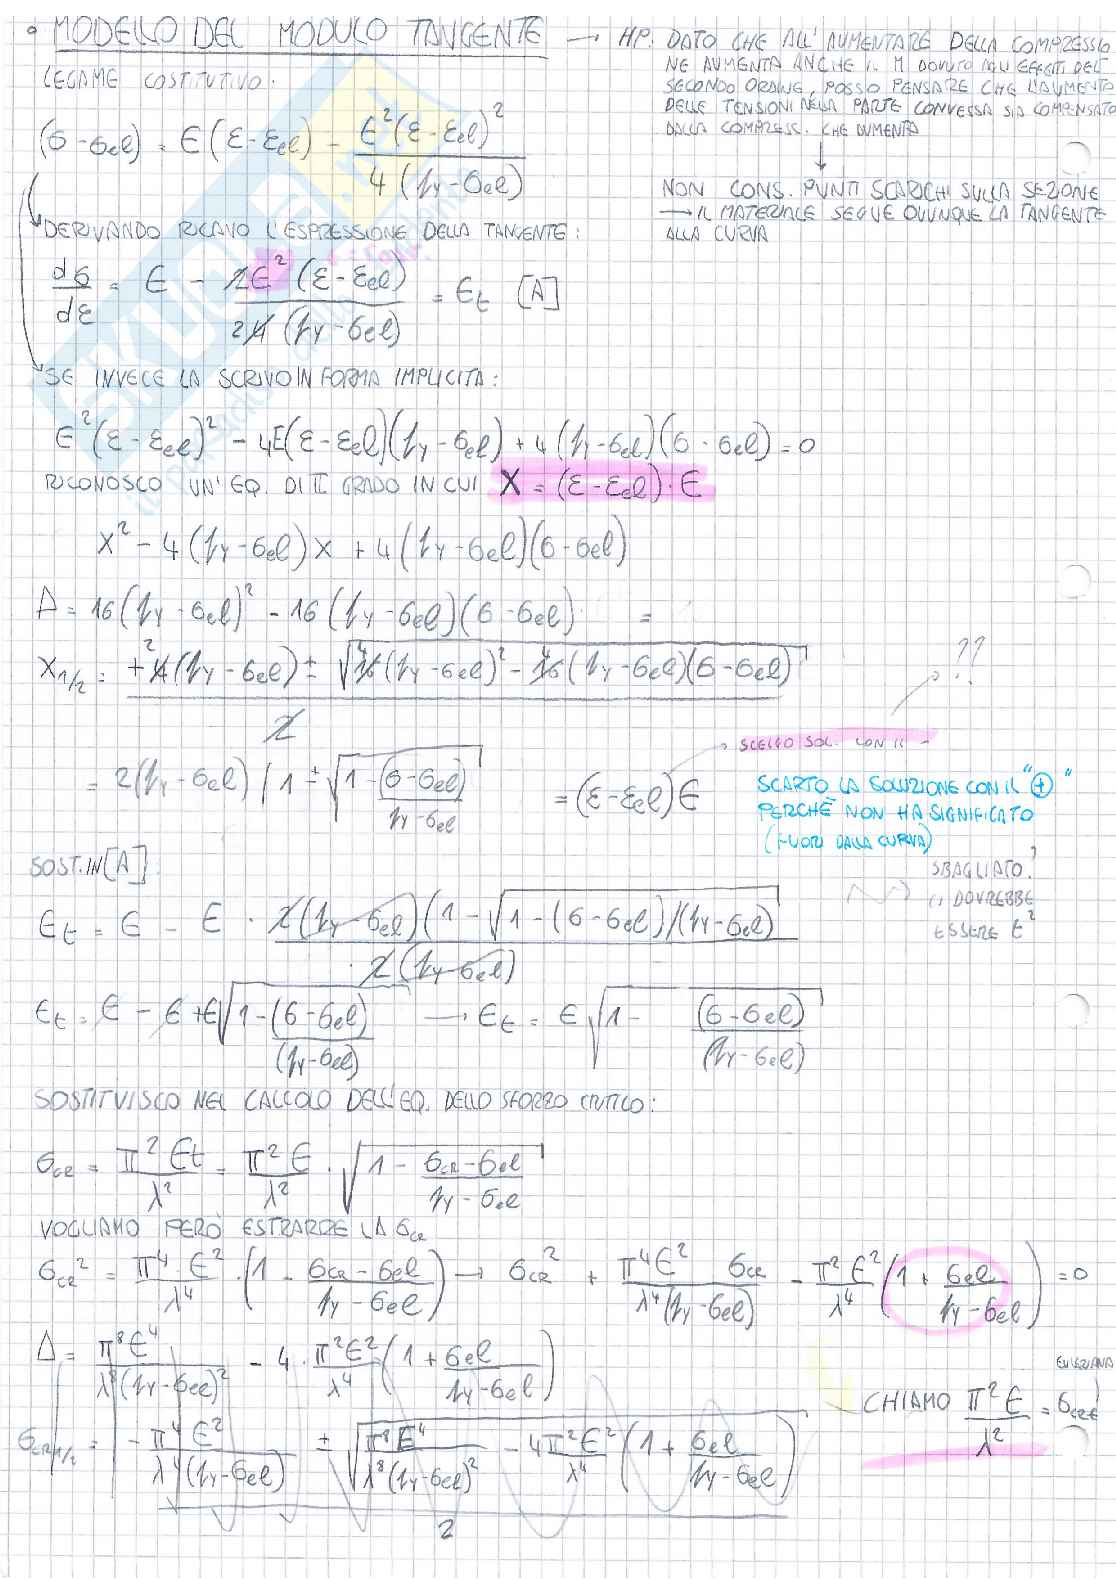 • MODELLO DEL MODULO TANGENTE → HP. DATO CHE ALL'AUMENTARE DELLA COMPRESSIO
NE AUMENTA ANCHE IL M DOVUTO AGLI EFFETTI DEL
SECONDO ORDINE, POSSO PENSARE CHE L'AUMENTO
DELLE TENSIONI NELLA PARTE CONVESSA SIA COMPENSATO
DALLA COMPRESS. CHE AUMENTA
↓
NON CONS. PUNTI SCARICHI SULLA SEZIONE
→ IL MATERIALE SEGUE OVUNQUE LA TANGENTE
ALLA CURVA
LEGAME COSTITUTIVO:
(σ - σel) = E (ε - εel) - E²(ε - εel)² / 4 (fy - σel)
DERIVANDO RICAVO L'ESPRESSIONE DELLA TANGENTE:
dσ/dε = E - 2E²(ε - εel) / 24 (fy - σel) = Et [A]
SE INVECE LA SCRIVO IN FORMA IMPLICITA:
E²(ε - εel)² - 4E(ε - εel)(fy - σel) + 4 (fy - σel)(σ - σel) = 0
RICONOSCO UN'EQ. DI II GRADO IN CUI X = (ε - εel) · E
X² - 4 (fy - σel) X + 4 (fy - σel)(σ - σel)
Δ = 16 (fy - σel)² - 16 (fy - σel)(σ - σel) =
X1/2 = +²4(fy - σel) ± √⁴16(fy - σel)² - ⁴16(fy - σel)(σ - σel) / 2
??
→ SCELGO SOL. CON IL -
= 2(fy - σel) (1 ± √1 - (σ - σel)/fy - σel = (ε - εel) E
SCARTO LA SOLUZIONE CON IL "⊕"
PERCHÈ NON HA SIGNIFICATO
(FUORI DALLA CURVA)
SOST. IN [A]:
SBAGLIATO?
CI DOVREBBE
ESSERE E²
Et = E - E · 2(fy - σel)(1 - √1 - (σ - σel)/(fy - σel) / 2 (fy - σel)
Et = E - E + E√1 - (σ - σel)/(fy - σel) → Et = E √1 - (σ - σel)/(fy - σel)
SOSTITUISCO NEL CALCOLO DELL'EQ. DELLO SFORZO CRITICO:
σCR = π² Et/λ² = π² E/λ² · √1 - σCR - σel/fy - σel
VOGLIAMO PERÒ ESTRARRE LA σCR
σCR² = π⁴ · E²/λ⁴ · (1 - σCR - σel/fy - σel) → σCR² + π⁴E² σCR/λ⁴(fy - σel) - π²E²/λ⁴ (1 + σel/fy - σel) = 0
Δ = π⁸E⁴/λ⁸(fy - σel)² - 4 · π²E²/λ⁴ (1 + σel/fy - σel)
EULERIANA
CHIAMO π² E/λ² = σCRE
σCR1/2 = - π⁴ E²/λ⁴(fy - σel) ± √π⁸E⁴/λ⁸(fy - σel)² - 4π²E²/λ⁴ (1 + σel/fy - σel) / 2